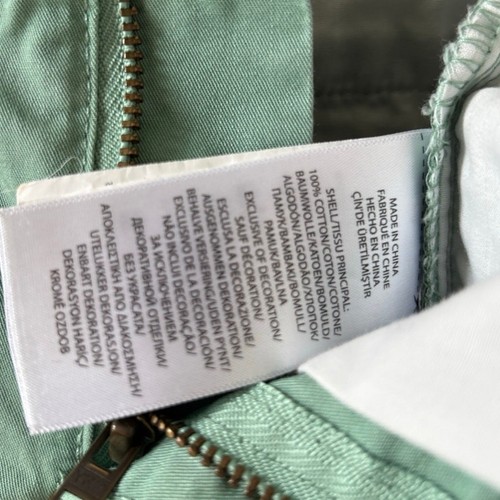 MADE IN CHINA
FABRIQUÉ EN CHINE
HECHO EN CHINA
ÇİN'DE ÜRETİLMİŞTİR
SHELL/TISSU PRINCIPAL:
100% COTTON/COTON/COTONE/
BAUMWOLLE/KATOEN/BOMULD/
ALGODÓN/ALGODÃO/ХЛОПОК/
ΠΑΜΥΚ/ΒΑΜΒΑΚΙ/BOMULL/
PAMUK/BAWEŁNA
EXCLUSIVE OF DECORATION/
SAUF DÉCORATION/
ESCLUSA LA DECORAZIONE/
AUSGENOMMEN DEKORATION/
BEHALVE VERSIERING/UDEN PYNT/
EXCLUSIVO DE LA DECORACIÓN/
NÃO INCLUI DECORAÇÃO/
ЗА ИСКЛЮЧЕНИЕМ
ДЕКОРАТИВНОЙ ОТДЕЛКИ/
БЕЗ УКРАСАТА/
ΑΠΟΚΛΕΙΣΤΙΚΗ ΑΠΟ ΔΙΑΚΟΣΜΗΣΗ/
UTELUKKER DEKORASJON/
ENBART DEKORATION/
DEKORASYON HARİÇ/
KROMĚ OZDOB